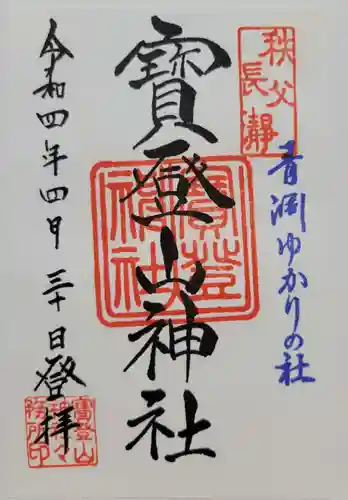 秩父
長瀞
青淵ゆかりの社
寳登山神社
寳登
山神社
令和四年四月三十日登拝
寳登山
神社々
務所印